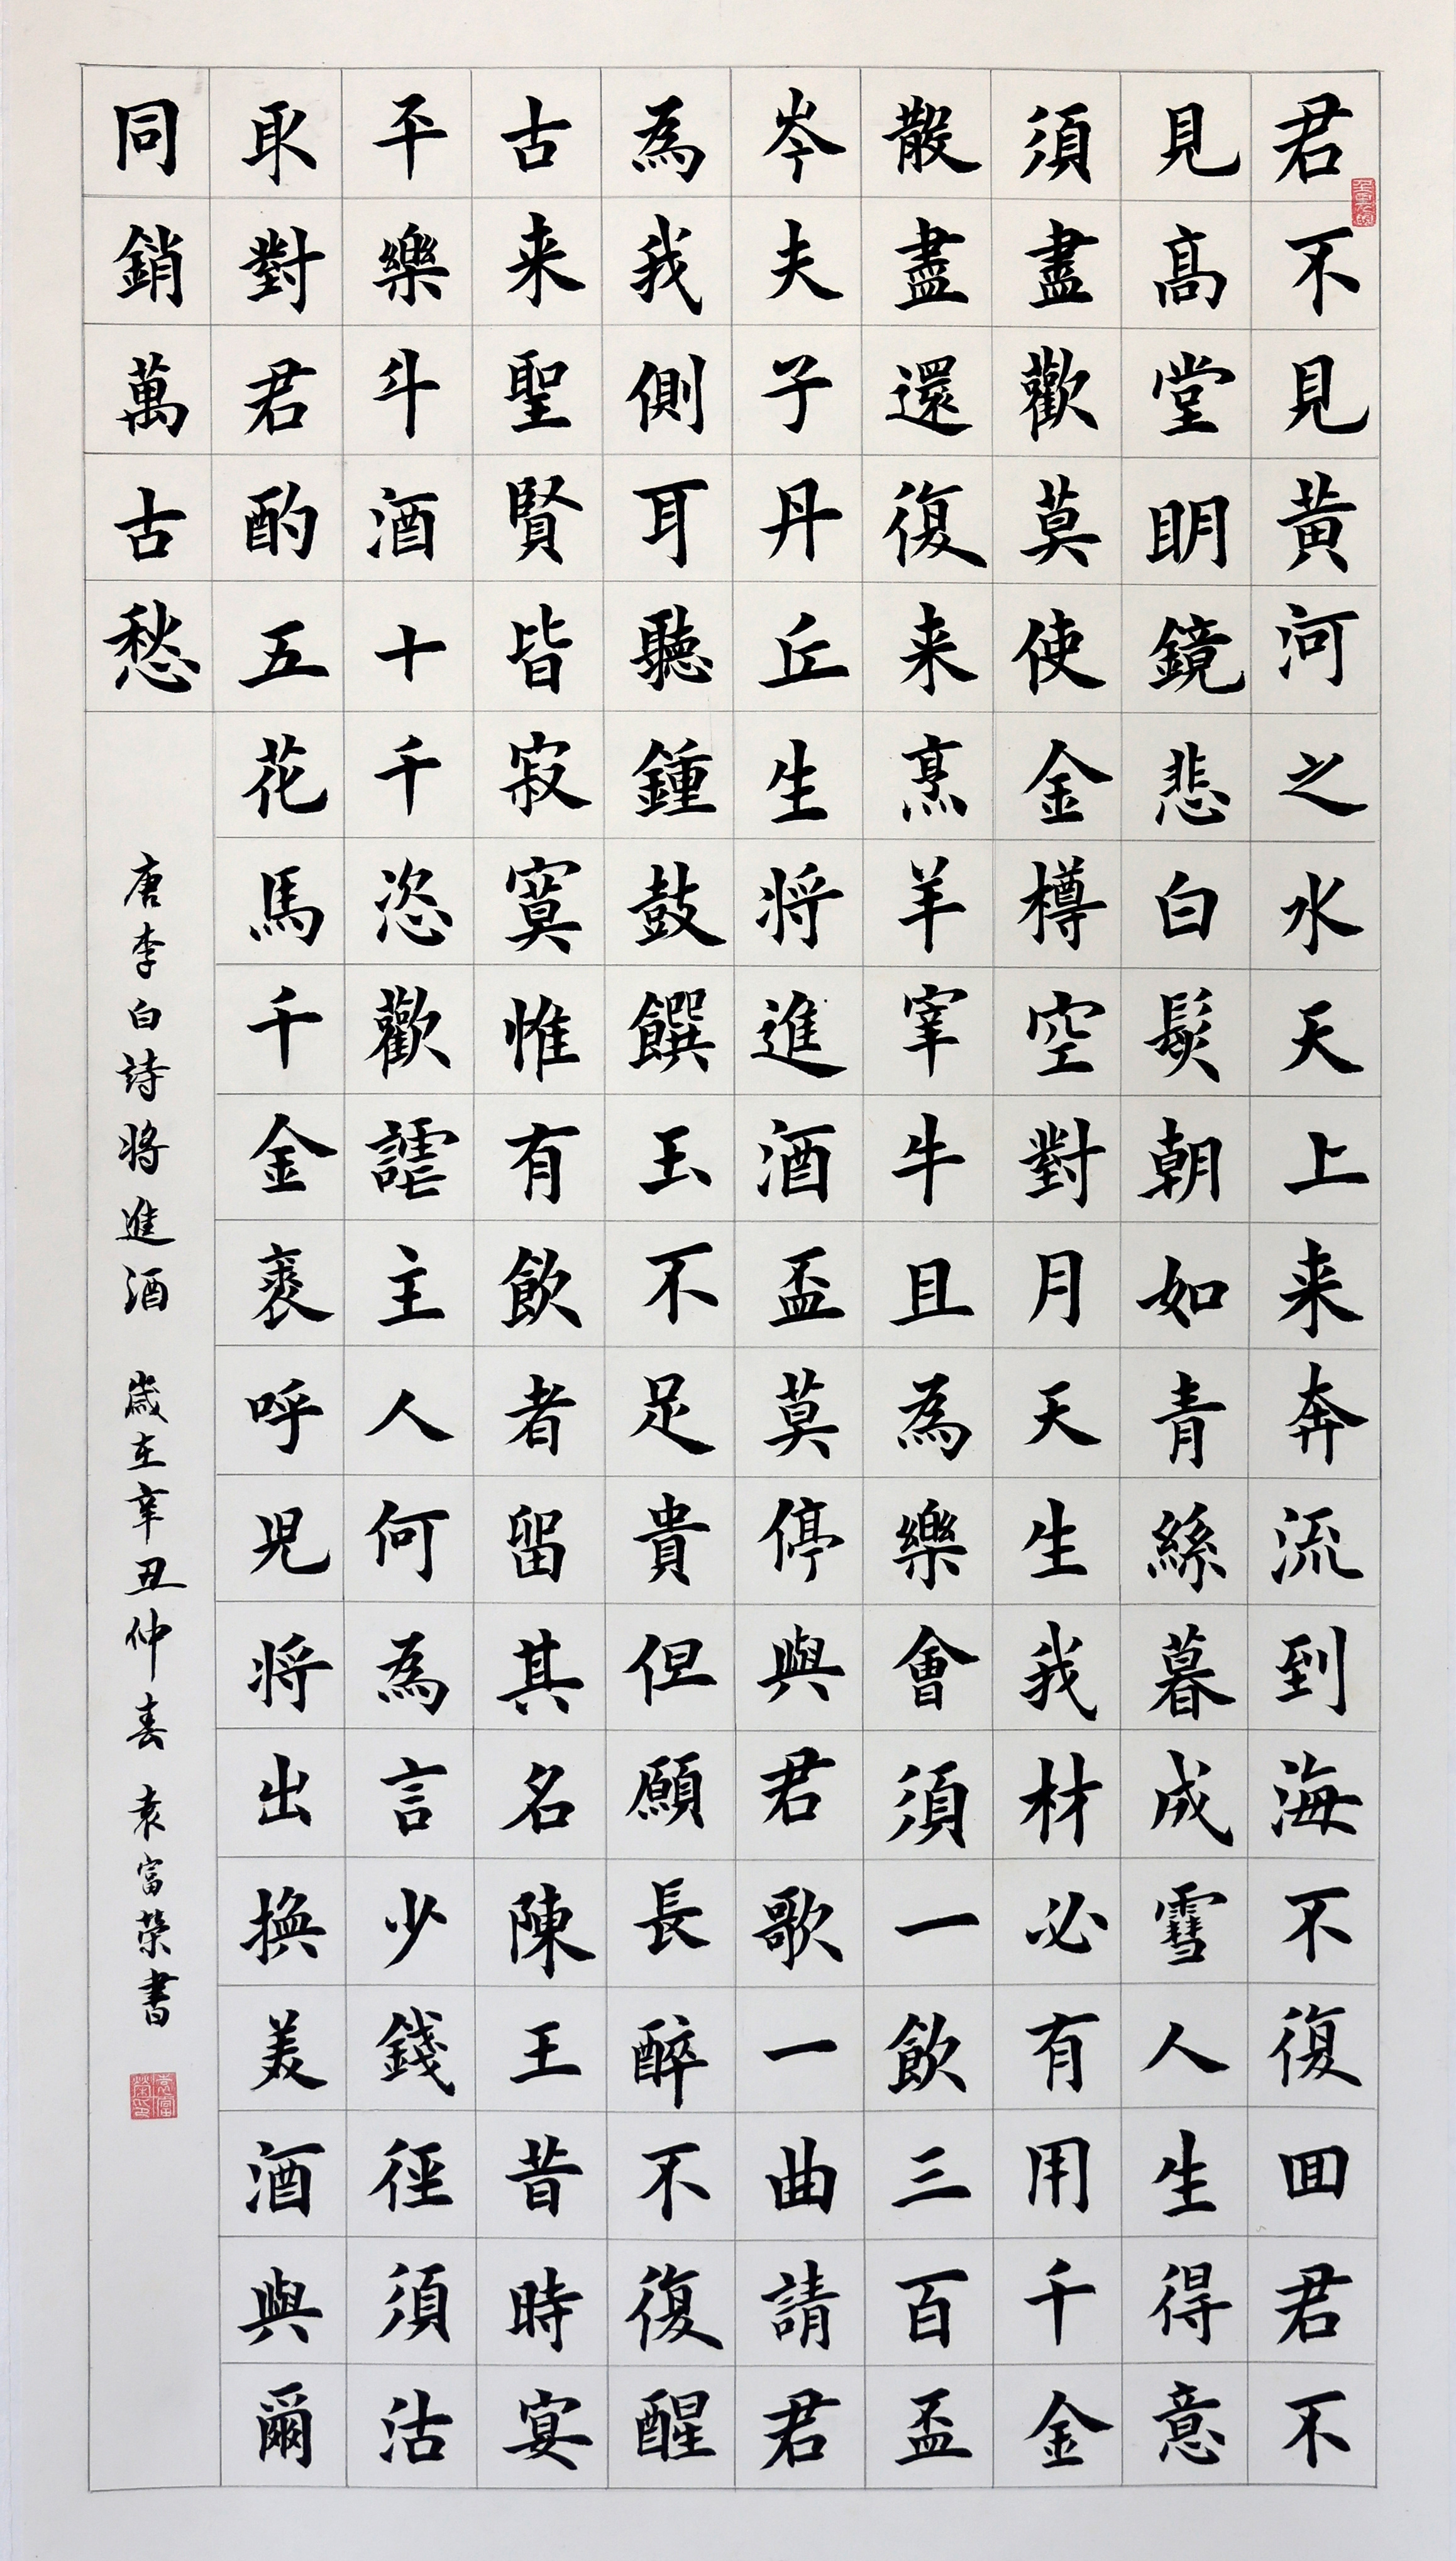 君不見黃河之水天上来奔流到海不復囬君不
見髙堂眀鏡悲白髮朝如青絲暮成雪人生得意
須盡歡莫使金樽空對月天生我材必有用千金
散盡還復来烹羊宰牛且為樂會須一飲三百盃
岑夫子丹丘生将進酒盃莫停與君歌一曲請君
為我側耳聽鍾鼓饌玉不足貴但願長醉不復醒
古来聖賢皆寂寞惟有飲者留其名陳王昔時宴
平樂斗酒十千恣歡謔主人何為言少錢徑須沽
取對君酌五花馬千金裘呼兒将出換美酒與爾
同銷萬古愁
唐李白詩將進酒 歲在辛丑仲春 袁富榮書
袁富榮印